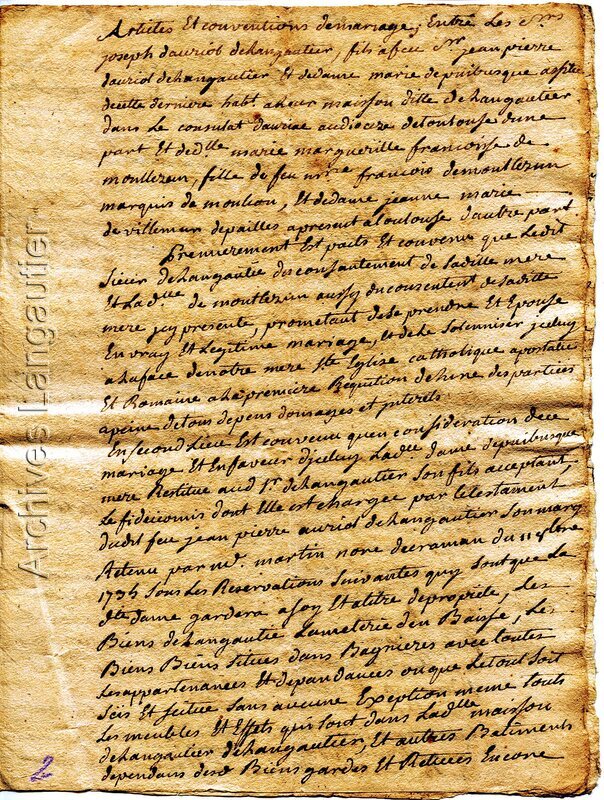 Articles Et conventions demariage, Entre Les Srs
joseph dauriol delangautier, fils afeu Sr jean pierre
dauriol delangautier Et dedame marie depuibusque assisté
decette derniere habt. aleur maison ditte delangautier
dans Le consulat dauriac audiocize detoulouse dune
part Et de dlle marie margueritte francoise de
montlezun, fille de feu mre francois demontlezun
marquis de moulion, Et dedame jeanne marie
de villemur depailles apresent atoulouse dautre part.
Premierement Est pacté Et convenu que Ledit
Sieur delangautié du consantement de saditte mere
Et Ladlle de montlezun aussy du consentent. desaditte
mere jcy presente, prometant de se prendre Et Epouse
En vray Et Legitime mariage, Et de Le Solemniser jceluy
alaface de notre mere Ste Eglise catholique apostolic
Et Romaine ala premiere Requition de Lune des parties
apeine detous depens domages et jnterets.
En second Lieu Est convenu quen consideration dece
mariage Et En faveur djceluy Ladte dame depuibusque
mere Restitue audt Sr delangautier son fils acceptant,
Le fideicomis dont Elle est chargée par Letestament
dudit feu jean pierre auriol delangautier son mary
Retenu par me. martin nore decraman du 11
1735 Sous Les Reservations Suivantes quy sont que La
dte dame gardera asoy Et atitre de proprieté, Les
Biens delangautié Lameterie den Baisse, Les
Biens Biens Situés dans Bagnieres avec toutes
Les appartenances Et dependances ou que Le tout soit
Sis Et scitué sans aucune Exception meme touts
Les meubles Et Effets qui sont dans Ladtte maison
delangautier delangautier, Et autres Batiments
dependans desd Biens gardés Et Retenus Encore
2
Archives Langautier